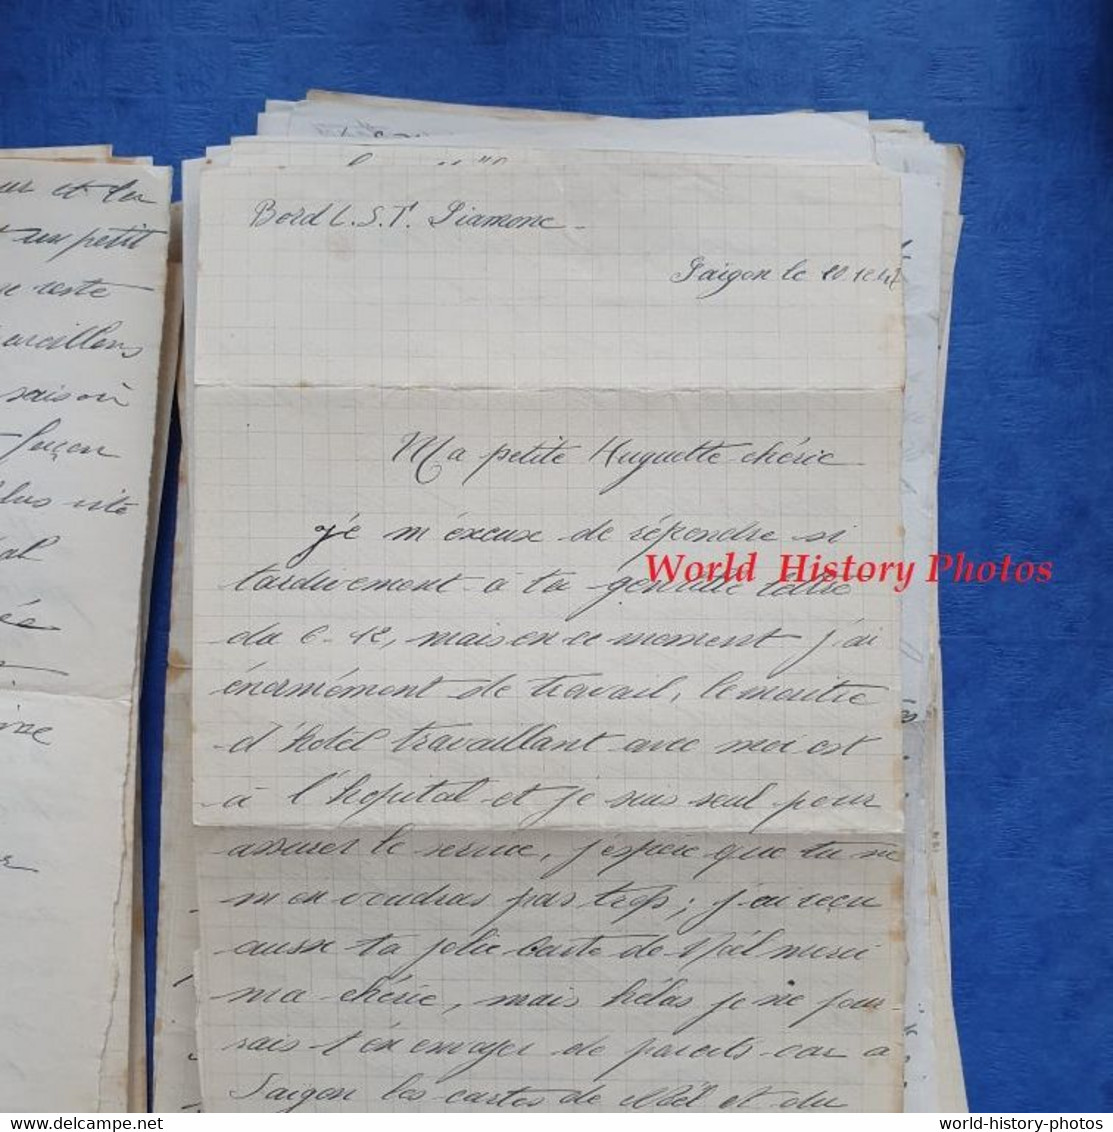 ur et la
t un petit
reste
arcillons
saison
façon
plus vite
al
ée
Bord L.S.T. Piamone
Saigon le 20.12.47
Ma petite Huguette chérie
Je m'éxcuse de répondre si
tardivement a ta gentille lettre
du 6-12, mais en ce moment j'ai
énormément de travail, le maitre
d'hotel travaillant avec moi est
à l'hopital et je suis seul pour
assurer le service, j'éspère que tu ne
m'en voudras pas trop; j'ai reçu
aussi ta jolie carte de Noël merci
ma chérie, mais hélas je ne pour-
rais t'en envoyer de pareils car a
Saigon les cartes de Noël et du
World History Photos
delcampe.net
world-history-photos